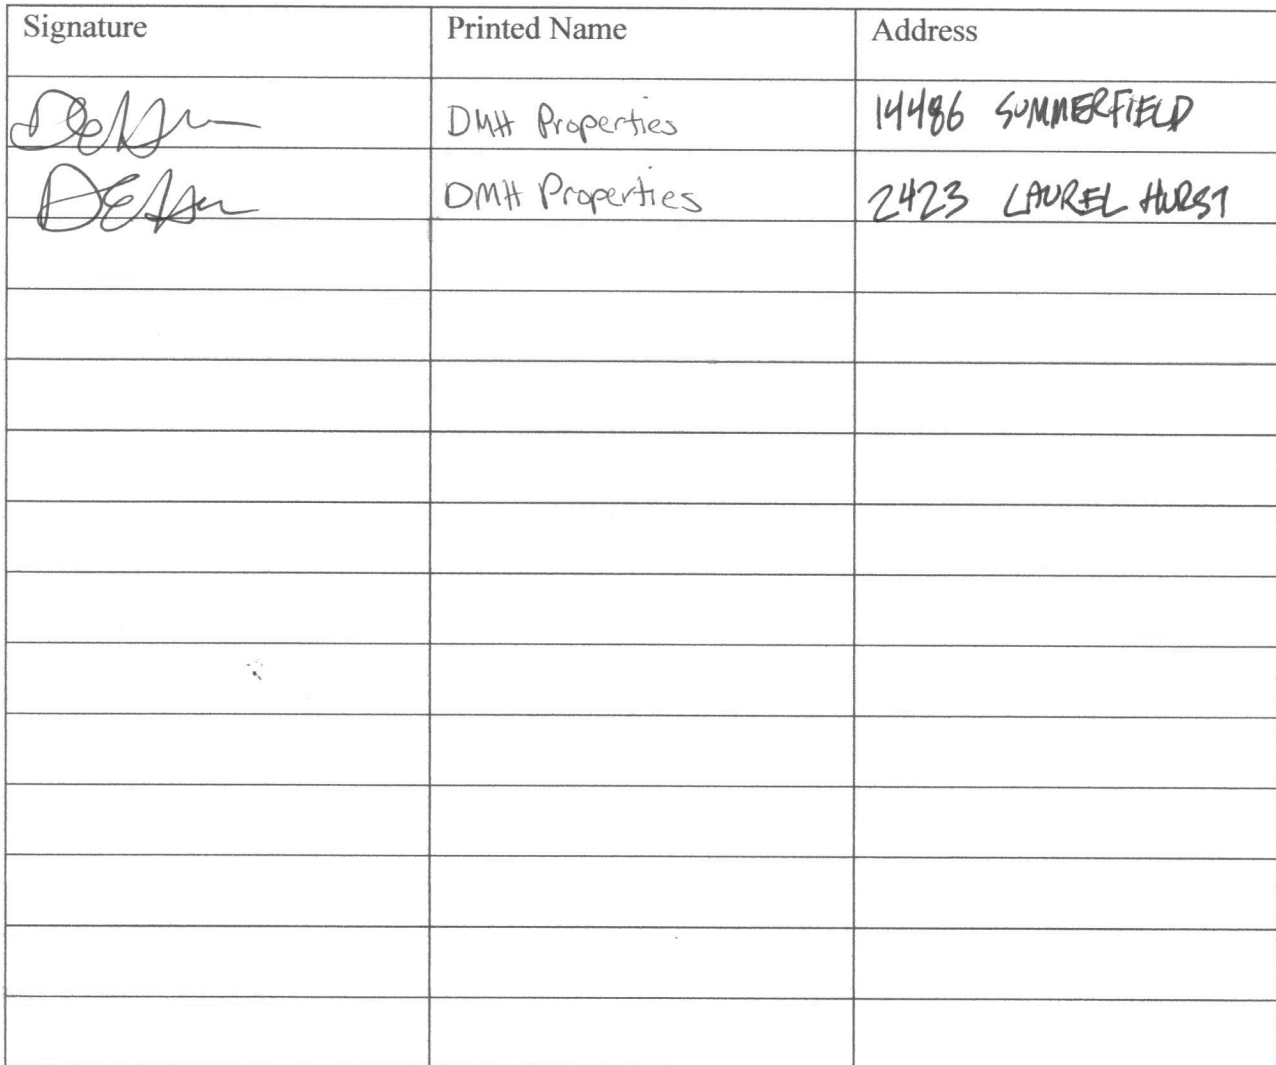 Signature Printed Name Address
DMH Properties 14486 SUMMERFIELD
DMH Properties 2423 LAUREL HURST